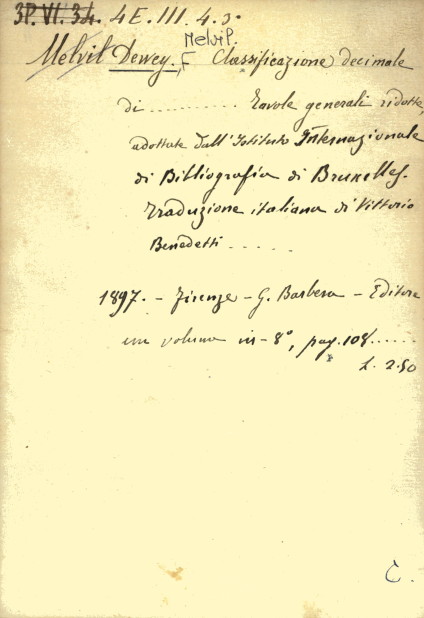 3P. VI. 34. 4E. III. 4.3.
Melvil.
Melvil Dewey. Classificazione decimale
di ............ Tavole generali ridotte,
adottate dall'Istituto Internazionale
di Bibliografia di Bruxelles.
Traduzione italiana di Vittorio
Benedetti .....
1897. - Firenze - G. Barbera - Editore
un volume in-8°, pag. 108......
L. 2.50
C.